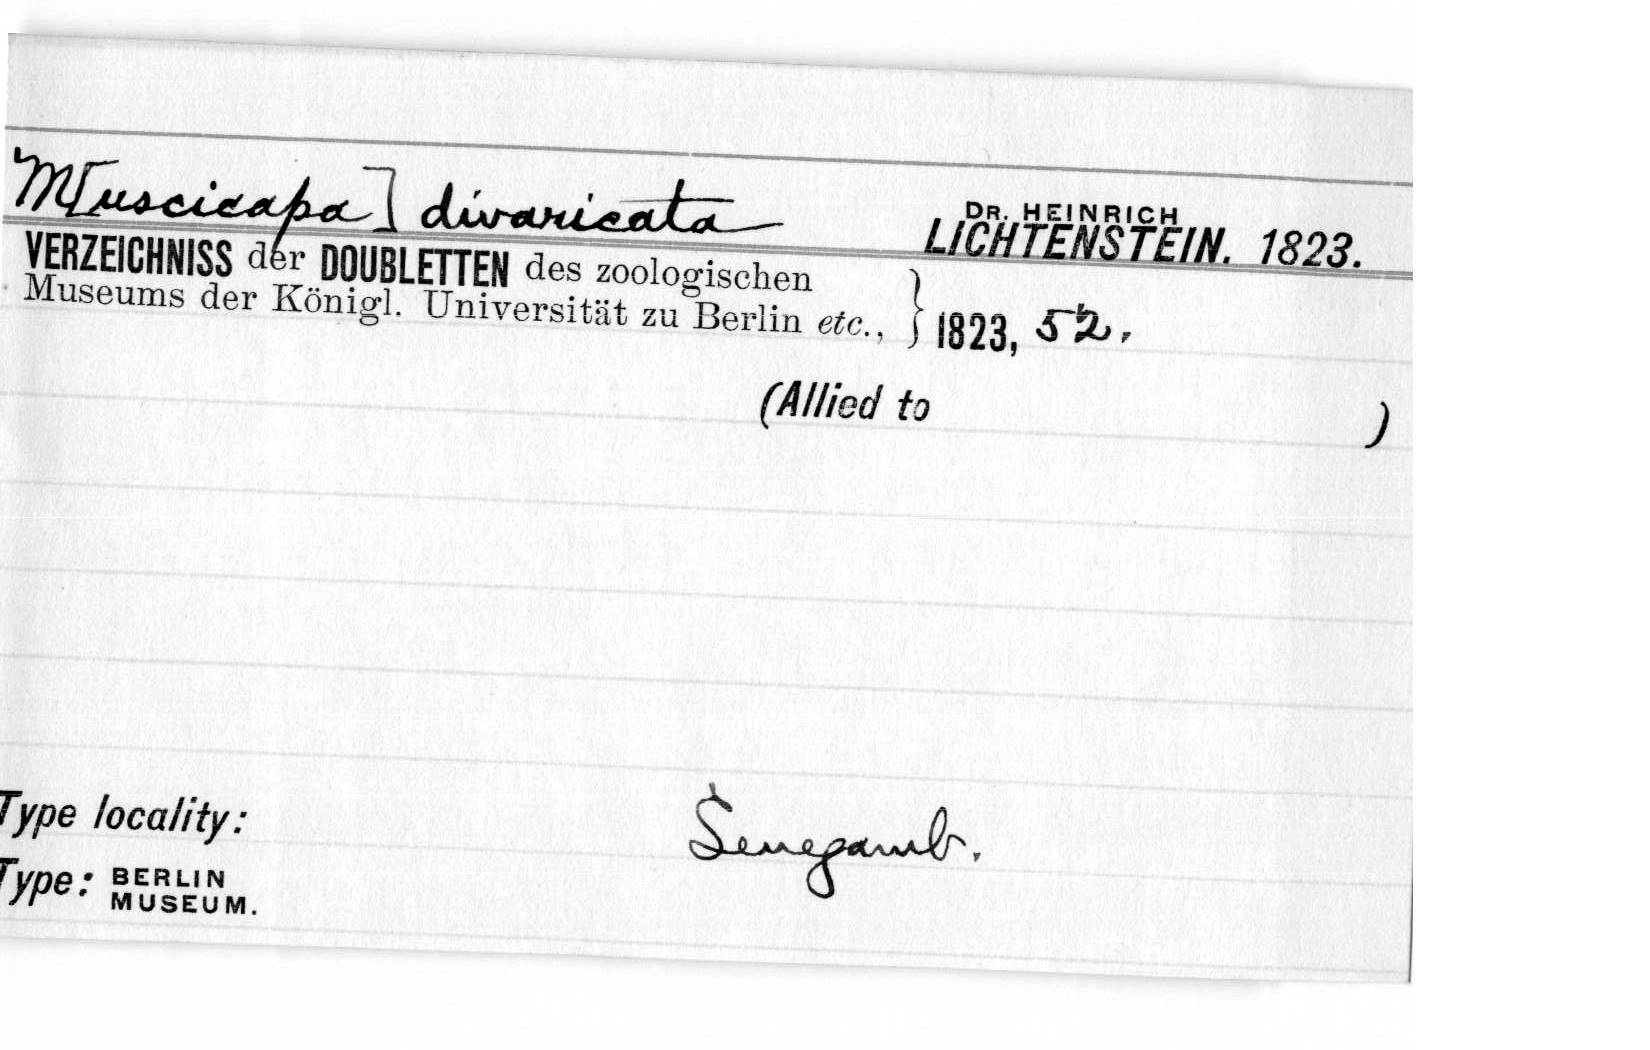 M[uscicapa] divaricata
DR. HEINRICH
LICHTENSTEIN. 1823.
VERZEICHNISS der DOUBLETTEN des zoologischen
Museums der Königl. Universität zu Berlin etc., } 1823, 52.
(Allied to )
Type locality: Senegamb.
Type: BERLIN
MUSEUM.